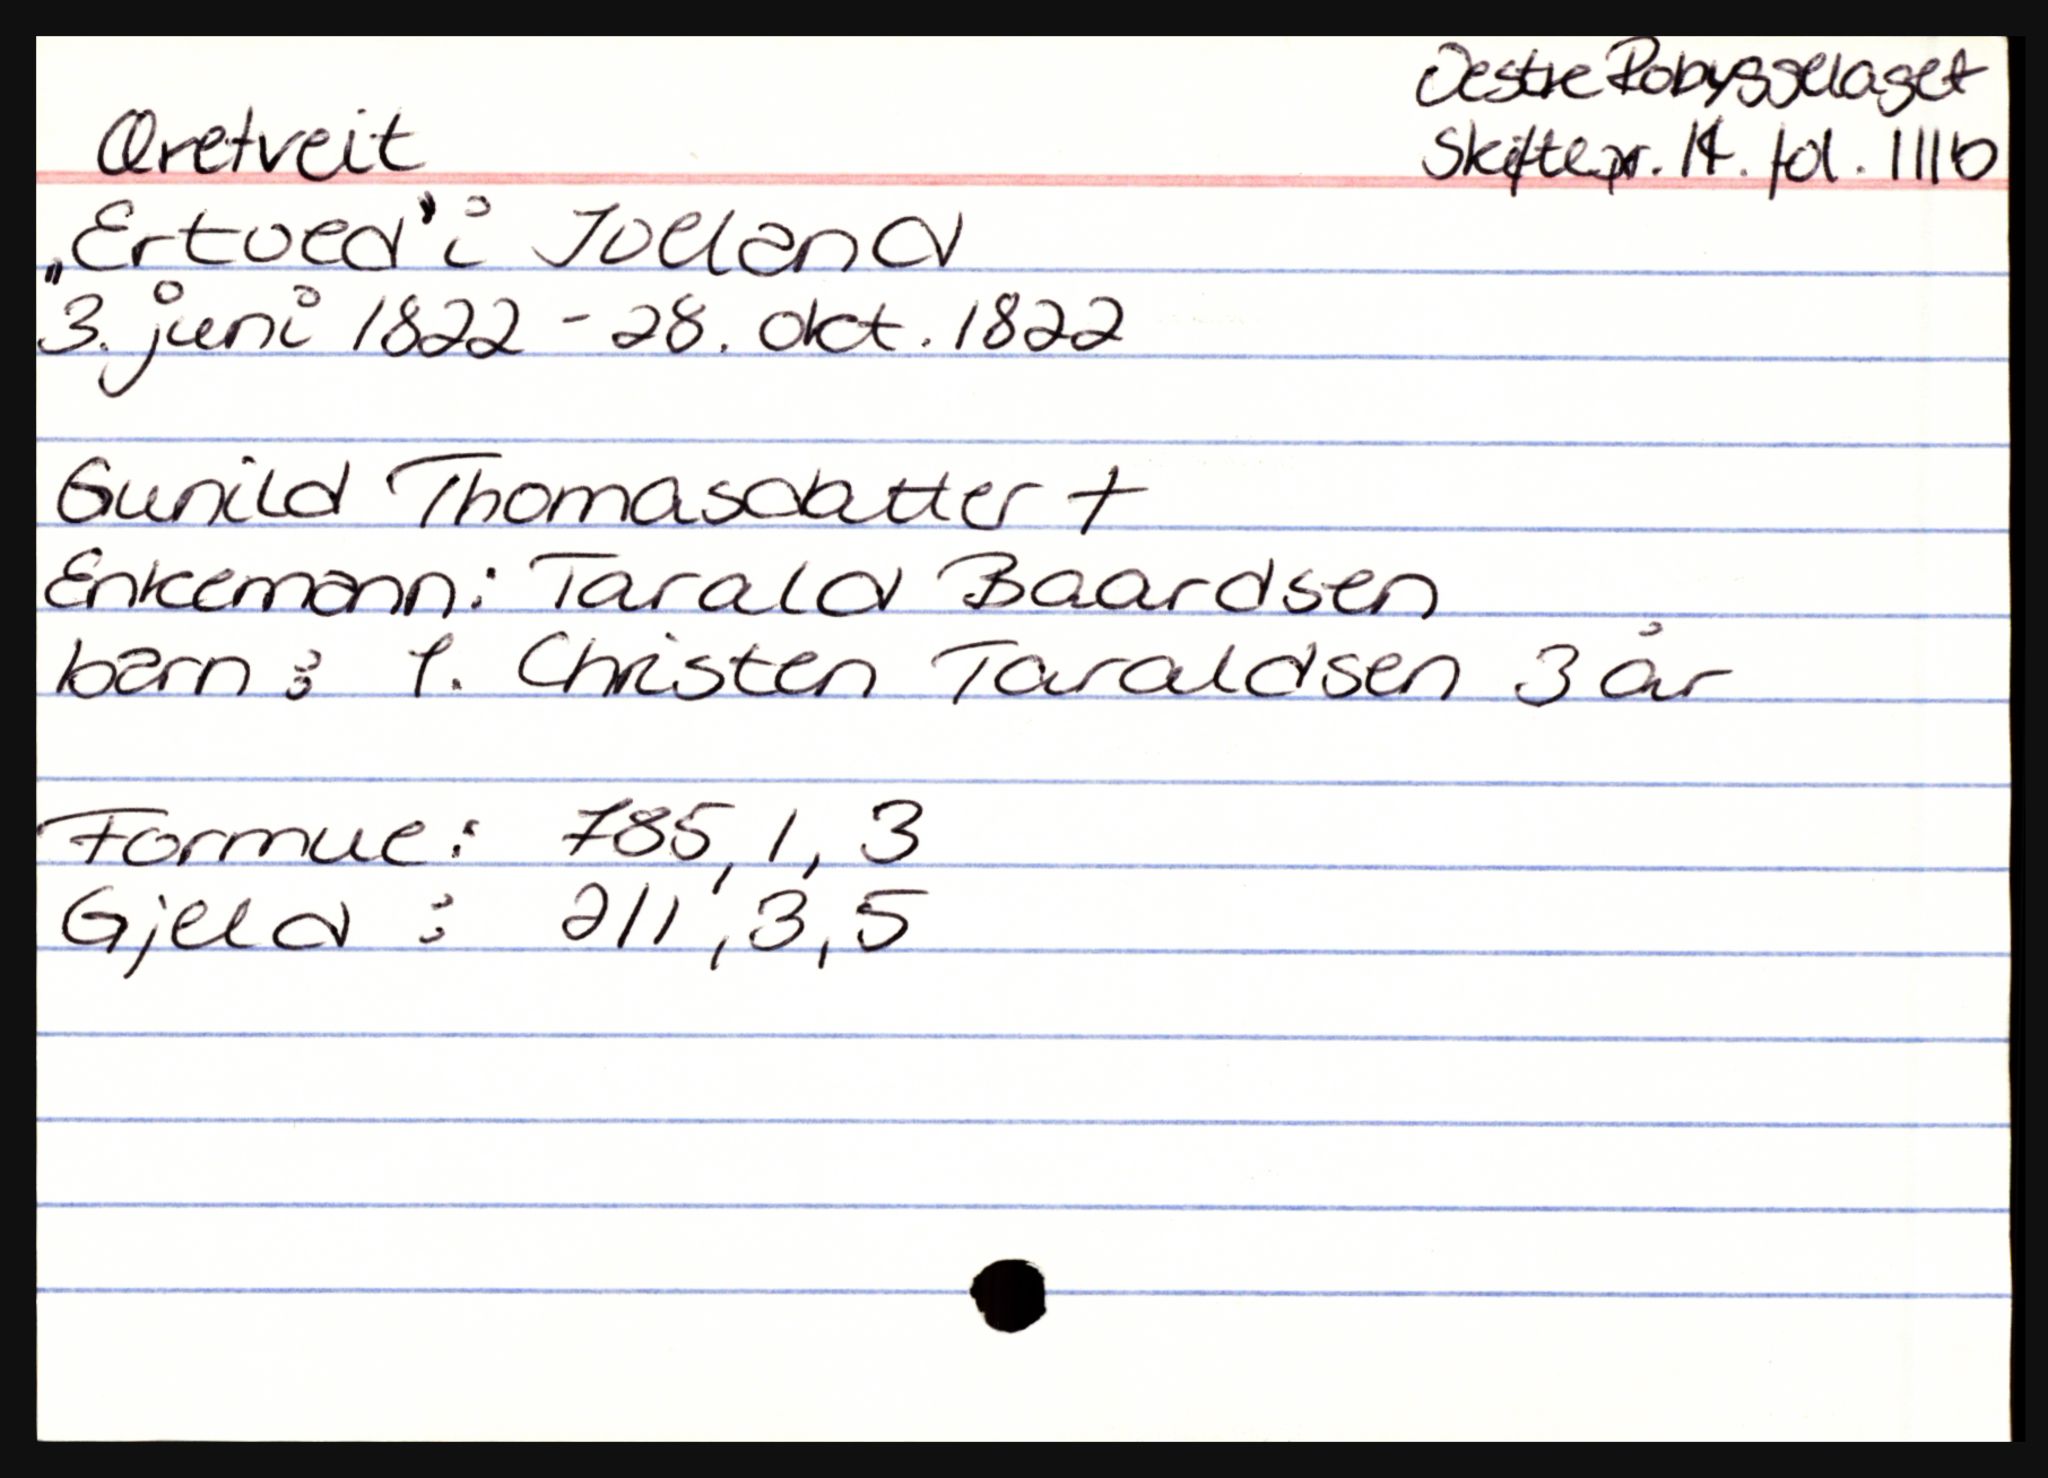 Vestre Robyggelaget
Skiftepr. 14. fol. 111b
Øretveit
„Ertved" i Iveland
3. juni 1822 - 28. okt. 1822
Gunild Thomasdatter +
Enkemann: Tarald Baardsen
barn: 1. Christen Taraldsen 3 år
Formue: 785, 1, 3
Gjeld: 211, 3, 5